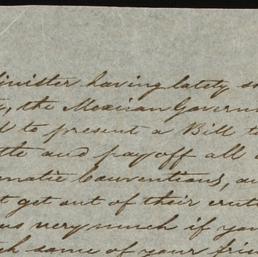 Minister having lately s
the Mexican Governm
to present a Bill t
and pay off all
Conventions, a
get out of their
very much if you
some of your frie